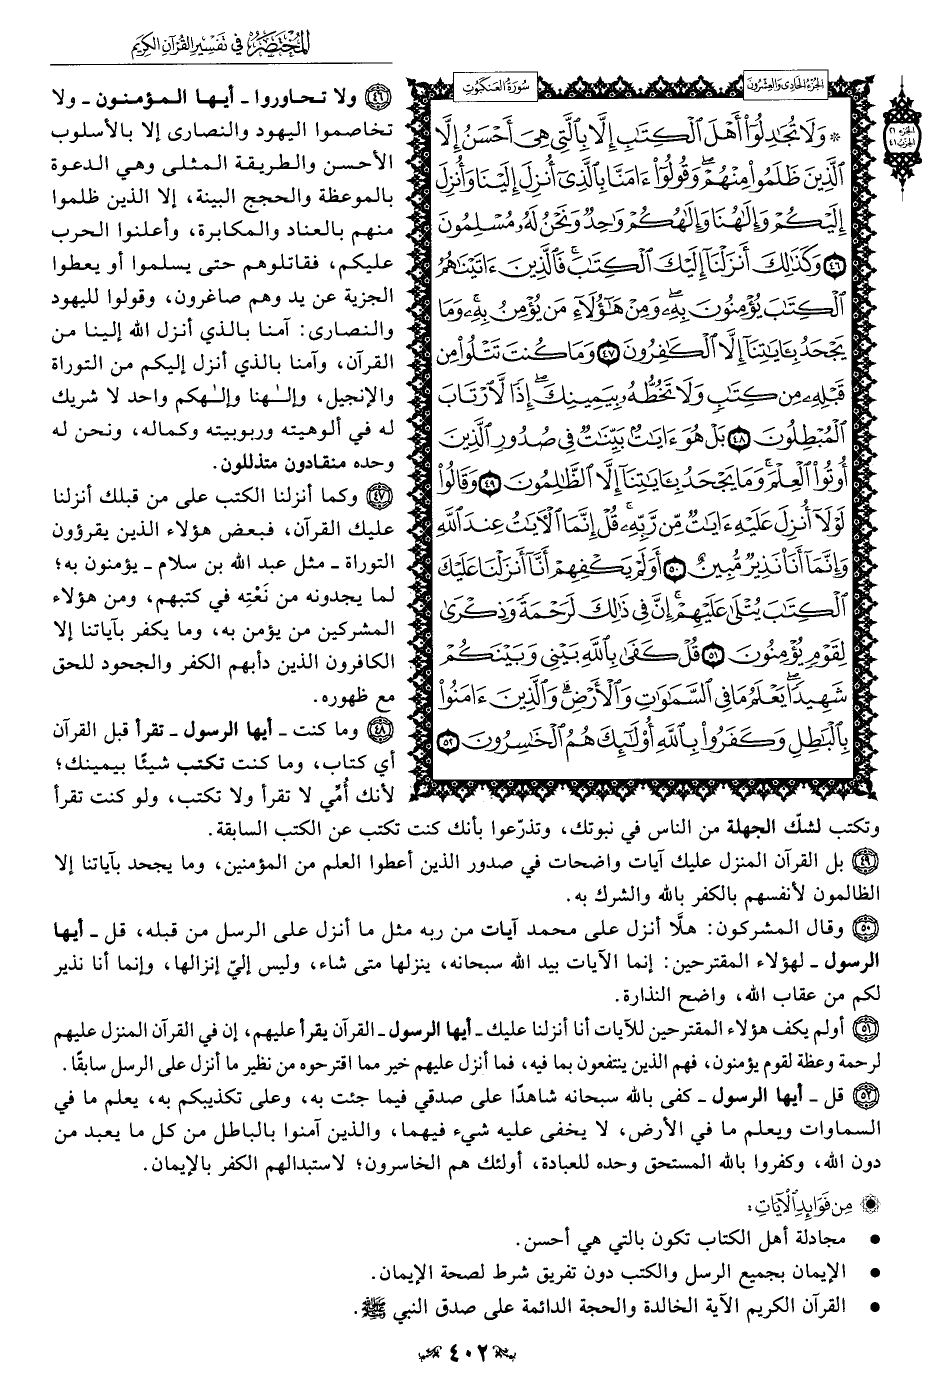 المختصر في تفسير القرآن الكريم
الجزء الحادي والعشرون
سورة العنكبوت
الجزء ٢١
الحزب ٤١
* وَلَا تُجَٰدِلُوٓاْ أَهۡلَ ٱلۡكِتَٰبِ إِلَّا بِٱلَّتِي هِيَ أَحۡسَنُ إِلَّا
ٱلَّذِينَ ظَلَمُواْ مِنۡهُمۡۖ وَقُولُوٓاْ ءَامَنَّا بِٱلَّذِيٓ أُنزِلَ إِلَيۡنَا وَأُنزِلَ
إِلَيۡكُمۡ وَإِلَٰهُنَا وَإِلَٰهُكُمۡ وَٰحِدٞ وَنَحۡنُ لَهُۥ مُسۡلِمُونَ
٤٦ وَكَذَٰلِكَ أَنزَلۡنَآ إِلَيۡكَ ٱلۡكِتَٰبَۚ فَٱلَّذِينَ ءَاتَيۡنَٰهُمُ
ٱلۡكِتَٰبَ يُؤۡمِنُونَ بِهِۦۖ وَمِنۡ هَٰٓؤُلَآءِ مَن يُؤۡمِنُ بِهِۦۚ وَمَا
يَجۡحَدُ بِـَٔايَٰتِنَآ إِلَّا ٱلۡكَٰفِرُونَ ٤٧ وَمَا كُنتَ تَتۡلُواْ مِن
قَبۡلِهِۦ مِن كِتَٰبٖ وَلَا تَخُطُّهُۥ بِيَمِينِكَۖ إِذٗا لَّٱرۡتَابَ
ٱلۡمُبۡطِلُونَ ٤٨ بَلۡ هُوَ ءَايَٰتُۢ بَيِّنَٰتٞ فِي صُدُورِ ٱلَّذِينَ
أُوتُواْ ٱلۡعِلۡمَۚ وَمَا يَجۡحَدُ بِـَٔايَٰتِنَآ إِلَّا ٱلظَّٰلِمُونَ ٤٩ وَقَالُواْ
لَوۡلَآ أُنزِلَ عَلَيۡهِ ءَايَٰتٞ مِّن رَّبِّهِۦۚ قُلۡ إِنَّمَا ٱلۡأٓيَٰتُ عِندَ ٱللَّهِ
وَإِنَّمَآ أَنَا۠ نَذِيرٞ مُّبِينٌ ٥٠ أَوَلَمۡ يَكۡفِهِمۡ أَنَّآ أَنزَلۡنَا عَلَيۡكَ
ٱلۡكِتَٰبَ يُتۡلَىٰ عَلَيۡهِمۡۚ إِنَّ فِي ذَٰلِكَ لَرَحۡمَةٗ وَذِكۡرَىٰ
لِقَوۡمٖ يُؤۡمِنُونَ ٥١ قُلۡ كَفَىٰ بِٱللَّهِ بَيۡنِي وَبَيۡنَكُمۡ
شَهِيدٗاۖ يَعۡلَمُ مَا فِي ٱلسَّمَٰوَٰتِ وَٱلۡأَرۡضِۗ وَٱلَّذِينَ ءَامَنُواْ
بِٱلۡبَٰطِلِ وَكَفَرُواْ بِٱللَّهِ أُوْلَٰٓئِكَ هُمُ ٱلۡخَٰسِرُونَ ٥٢
٤٦ ولا تحاوروا - أيها المؤمنون - ولا
تخاصموا اليهود والنصارى إلا بالأسلوب
الأحسن والطريقة المثلى وهي الدعوة
بالموعظة والحجج البينة، إلا الذين ظلموا
منهم بالعناد والمكابرة، وأعلنوا الحرب
عليكم، فقاتلوهم حتى يسلموا أو يعطوا
الجزية عن يد وهم صاغرون، وقولوا لليهود
والنصارى: آمنا بالذي أنزل الله إلينا من
القرآن، وآمنا بالذي أنزل إليكم من التوراة
والإنجيل، وإلـٰهنا وإلـٰهكم واحد لا شريك
له في ألوهيته وربوبيته وكماله، ونحن له
وحده منقادون متذللون.
٤٧ وكما أنزلنا الكتب على من قبلك أنزلنا
عليك القرآن، فبعض هؤلاء الذين يقرؤون
التوراة - مثل عبد الله بن سلام - يؤمنون به؛
لما يجدونه من نَعْتِه في كتبهم، ومن هؤلاء
المشركين من يؤمن به، وما يكفر بآياتنا إلا
الكافرون الذين دأبهم الكفر والجحود للحق
مع ظهوره.
٤٨ وما كنت - أيها الرسول - تقرأ قبل القرآن
أي كتاب، وما كنت تكتب شيئًا بيمينك؛
لأنك أُمِّي لا تقرأ ولا تكتب، ولو كنت تقرأ
وتكتب لشكّ الجهلة من الناس في نبوتك، وتذرّعوا بأنك كنت تكتب عن الكتب السابقة.
٤٩ بل القرآن المنزل عليك آيات واضحات في صدور الذين أعطوا العلم من المؤمنين، وما يجحد بآياتنا إلا
الظالمون لأنفسهم بالكفر بالله والشرك به.
٥٠ وقال المشركون: هلَّا أنزل على محمد آيات من ربه مثل ما أنزل على الرسل من قبله، قل - أيها
الرسول - لهؤلاء المقترحين: إنما الآيات بيد الله سبحانه، ينزلها متى شاء، وليس إليّ إنزالها، وإنما أنا نذير
لكم من عقاب الله، واضح النذارة.
٥١ أولم يكف هؤلاء المقترحين للآيات أنا أنزلنا عليك - أيها الرسول - القرآن يقرأ عليهم، إن في القرآن المنزل عليهم
لرحمة وعظة لقوم يؤمنون، فهم الذين ينتفعون بما فيه، فما أنزل عليهم خير مما اقترحوه من نظير ما أنزل على الرسل سابقًا.
٥٢ قل - أيها الرسول - كفى بالله سبحانه شاهدًا على صدقي فيما جئت به، وعلى تكذيبكم به، يعلم ما في
السماوات ويعلم ما في الأرض، لا يخفى عليه شيء فيهما، والذين آمنوا بالباطل من كل ما يعبد من
دون الله، وكفروا بالله المستحق وحده للعبادة، أولئك هم الخاسرون؛ لاستبدالهم الكفر بالإيمان.
من فوائد الآيات:
• مجادلة أهل الكتاب تكون بالتي هي أحسن.
• الإيمان بجميع الرسل والكتب دون تفريق شرط لصحة الإيمان.
• القرآن الكريم الآية الخالدة والحجة الدائمة على صدق النبي ﷺ.
٤٠٢